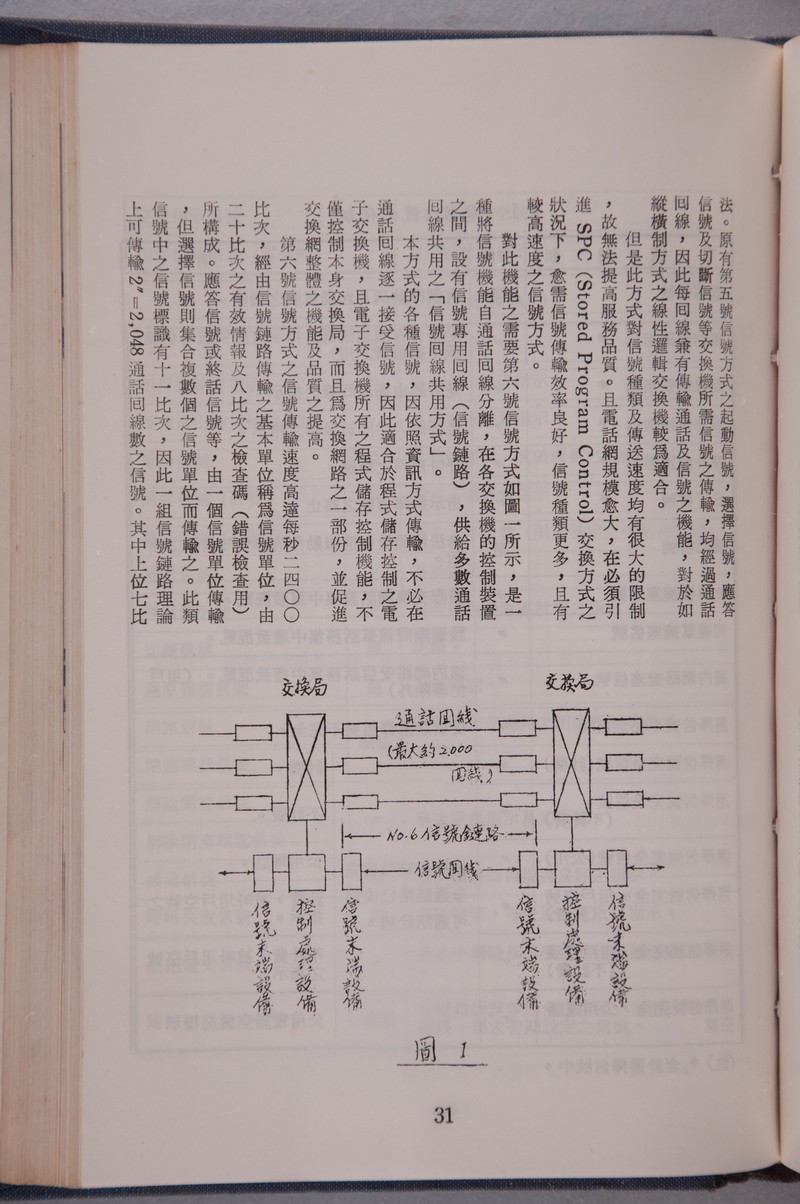 法。原有第五號信號方式之起動信號，選擇信號，應答
信號及切斷信號等交換機所需信號之傳輸，均經過通話
回線，因此每回線兼有傳輸通話及信號之機能，對於如
縱橫制方式之線性邏輯交換機較為適合。
但是此方式對信號種類及傳送速度均有很大的限制
，故無法提高服務品質。且電話網規模愈大，在必須引
進 SPC（Stored Program Control）交換方式之
狀況下，愈需信號傳輸效率良好，信號種類更多，且有
較高速度之信號方式。
對此機能之需要第六號信號方式如圖一所示，是一
種將信號機能自通話回線分離，在各交換機的控制裝置
之間，設有信號專用回線（信號鏈路），供給多數通話
回線共用之「信號回線共用方式」。
本方式的各種信號，因依照資訊方式傳輸，不必在
通話回線逐一接受信號，因此適合於程式儲存控制之電
子交換機，且電子交換機所有之程式儲存控制機能，不
僅控制本身交換局，而且爲交換網路之一部份，並促進
交換網整體之機能及品質之提高。
第六號信號方式之信號傳輸速度高達每秒二四〇〇
比次，經由信號鏈路傳輸之基本單位稱爲信號單位，由
二十比次之有效情報及八比次之檢查碼（錯誤檢查用）
所構成。應答信號或終話信號等，由一個信號單位傳輸
，但選擇信號則集合複數個之信號單位而傳輸之。此類
信號中之信號標識有十一比次，因此一組信號鏈路理論
上可傳輸 2¹¹＝2,048 通話回線數之信號。其中上位七比
交換局
交換局
通話回線
(最大約2,000
回線)
NO.6信號鏈路
信號回線
信號末端設備
控制處理設備
信號末端設備
信號末端設備
控制處理設備
信號末端設備
圖 1
31